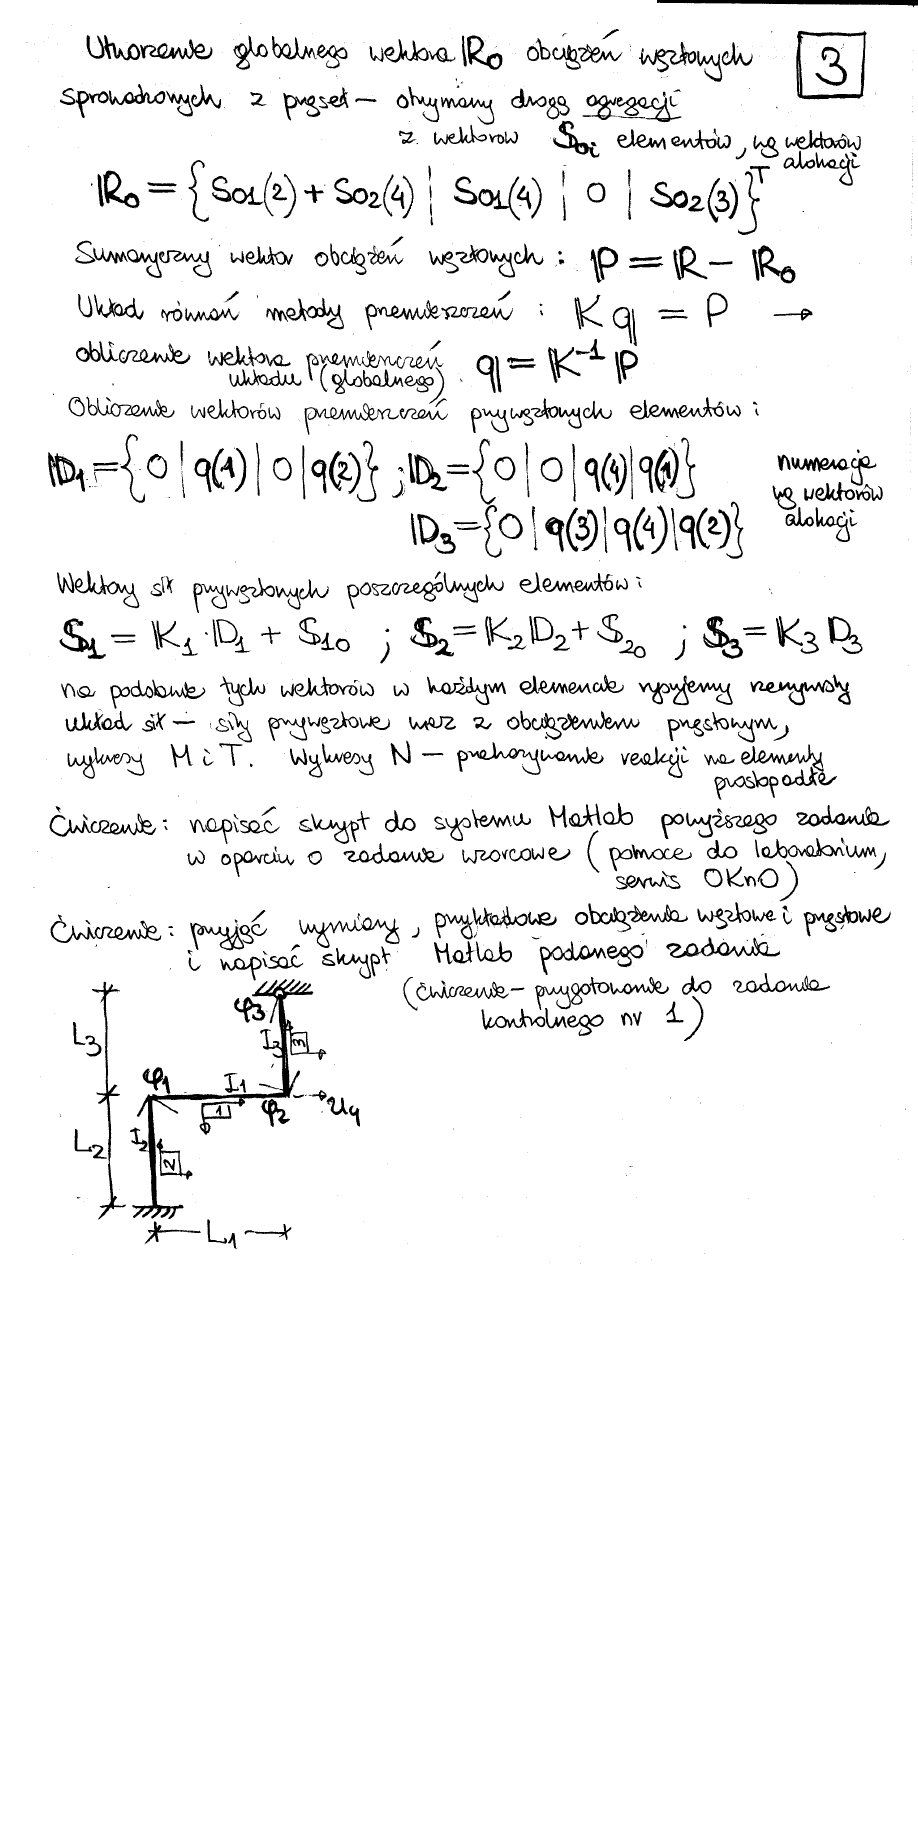 Utworzenie globalnego wektora R₀ obciążeń węzłowych
3
sprowadzonych z przęseł – otrzymany drogą agregacji
z wektorów S₀ᵢ elementów, wg wektorów
alokacji
R₀ = {S₀₁(2) + S₀₂(4) | S₀₁(4) | 0 | S₀₂(3)}ᵀ
Sumaryczny wektor obciążeń węzłowych : P = R – R₀
Układ równań metody przemieszczeń : K q = P →
obliczenie wektora przemieszczeń q = K⁻¹ P
układu (globalnego)
Obliczenie wektorów przemieszczeń przywęzłowych elementów :
D₁ = {0 | q(1) | 0 | q(2)} ; D₂ = {0 | 0 | q(4) | q(1)}
numeracja
wg wektorów
alokacji
D₃ = {0 | q(3) | q(4) | q(2)}
Wektory sił przywęzłowych poszczególnych elementów :
S₁ = K₁·D₁ + S₁₀ ; S₂ = K₂D₂ + S₂₀ ; S₃ = K₃ D₃
na podstawie tych wektorów w każdym elemencie rysujemy rzeczywisty
układ sił – siły przywęzłowe wraz z obciążeniem przęsłowym,
wykresy M i T. Wykresy N – przekazywanie reakcji na elementy
prostopadłe
Ćwiczenie : napisać skrypt do systemu Matlab powyższego zadania
w oparciu o zadanie wzorcowe (pomoce do laboratorium,
serwis OKnO)
Ćwiczenie : przyjąć wymiary, przykładowe obciążenia węzłowe i prętowe
i napisać skrypt Matlab podanego zadania
(ćwiczenie – przygotowanie do zadania
kontrolnego nr 1)
φ₃
L₃
I₃
3
φ₁
I₁
1
φ₂
u₄
L₂
I₂
2
L₁